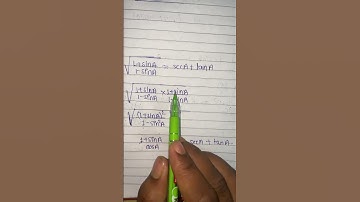 √(1+sinA / 1-sinA) = secA + tanA
√(1+sinA / 1-sinA × 1+sinA / 1+sinA)
√((1+sinA)² / 1-sin²A)
1+sinA / cosA secA + tanA